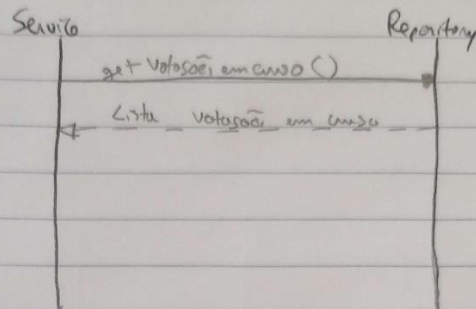 Serviço Repository
get Votações em curso ()
Lista votações em curso